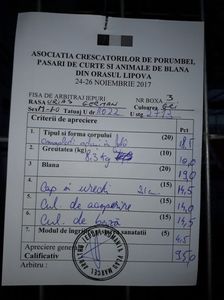 ASOCIATIA CRESCATORILOR DE PORUMBEI,
PASARI DE CURTE SI ANIMALE DE BLANA
DIN ORASUL LIPOVA
24-26 NOIEMBRIE 2017
FISA DE ARBITRAJ IEPURI NR BOXA 3
RASA URIAS GERMAN Culoarea GRI
Sex M 1-0 Tatuaj U dr R022 U stg 2773
Criterii de apreciere
1. Tipul si forma corpului (20) 18.5
2. Greutatea (kg) (10)
8,3 kg 10,0
3. Blana (20) 19,0
4. (15)
Cap si urechi 14,5
5. (15)
Cul. de acoperire 14,0
6. (15)
Cul. de bază 14,5
7. (5)
4,5
Apreciere generala 95,0
Calificativ
Arbitru :